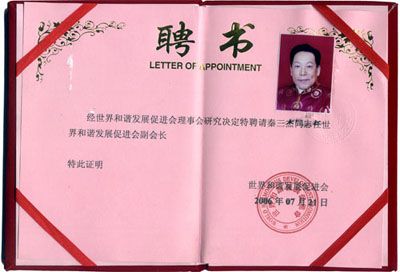 聘书
LETTER OF APPOINTMENT
经世界和谐发展促进会理事会研究决定特聘请秦三杰同志任世
界和谐发展促进会副会长
特此证明
世界和谐发展促进会
2006年07月21日